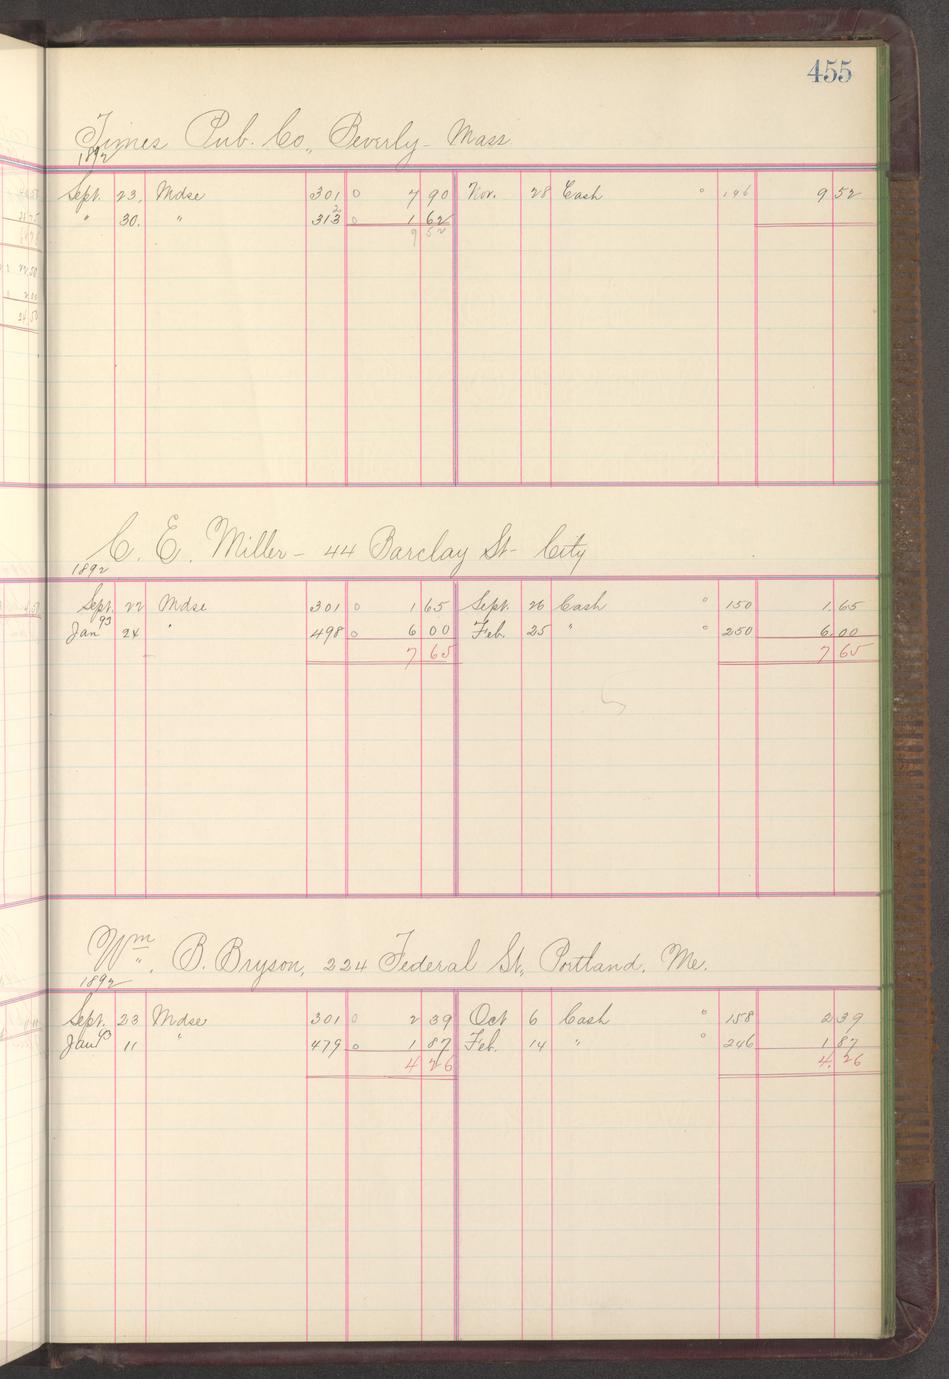 455
Times Pub. Co., Beverly - Mass.
1892
Sept. 23. Mdse 301 0 7 90 Nov. 28 Cash 0 196 9 52
" 30. " 313 0 1 62
9 52
C. E. Miller - 44 Barclay St - City
1892
Sept. 22 Mdse 301 0 1 65 Sept. 26 Cash 0 150 1.65
Jan 93 24 " 498 0 6 00 Feb. 25 " 0 250 6.00
7 65 7 65
Wm. B. Bryson, 224 Federal St., Portland, Me.
1892
Sept. 23 Mdse 301 0 2 39 Oct 6 Cash 0 158 2 39
Jan 93 11 " 479 0 1 87 Feb. 14 " 0 246 1 87
4 26 4. 26